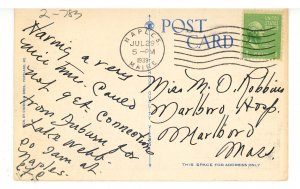 2-785
POST CARD
NAPLES
JUL 28
5-PM
1939
MAINE
Having a very
nice time. Could
not get connections
from Auburn for
Lake Webb.
so am at
Naples.
Miss M. O. Robbins
Marlboro Hosp.
Marlboro
Mass.
THIS SPACE FOR ADDRESS ONLY